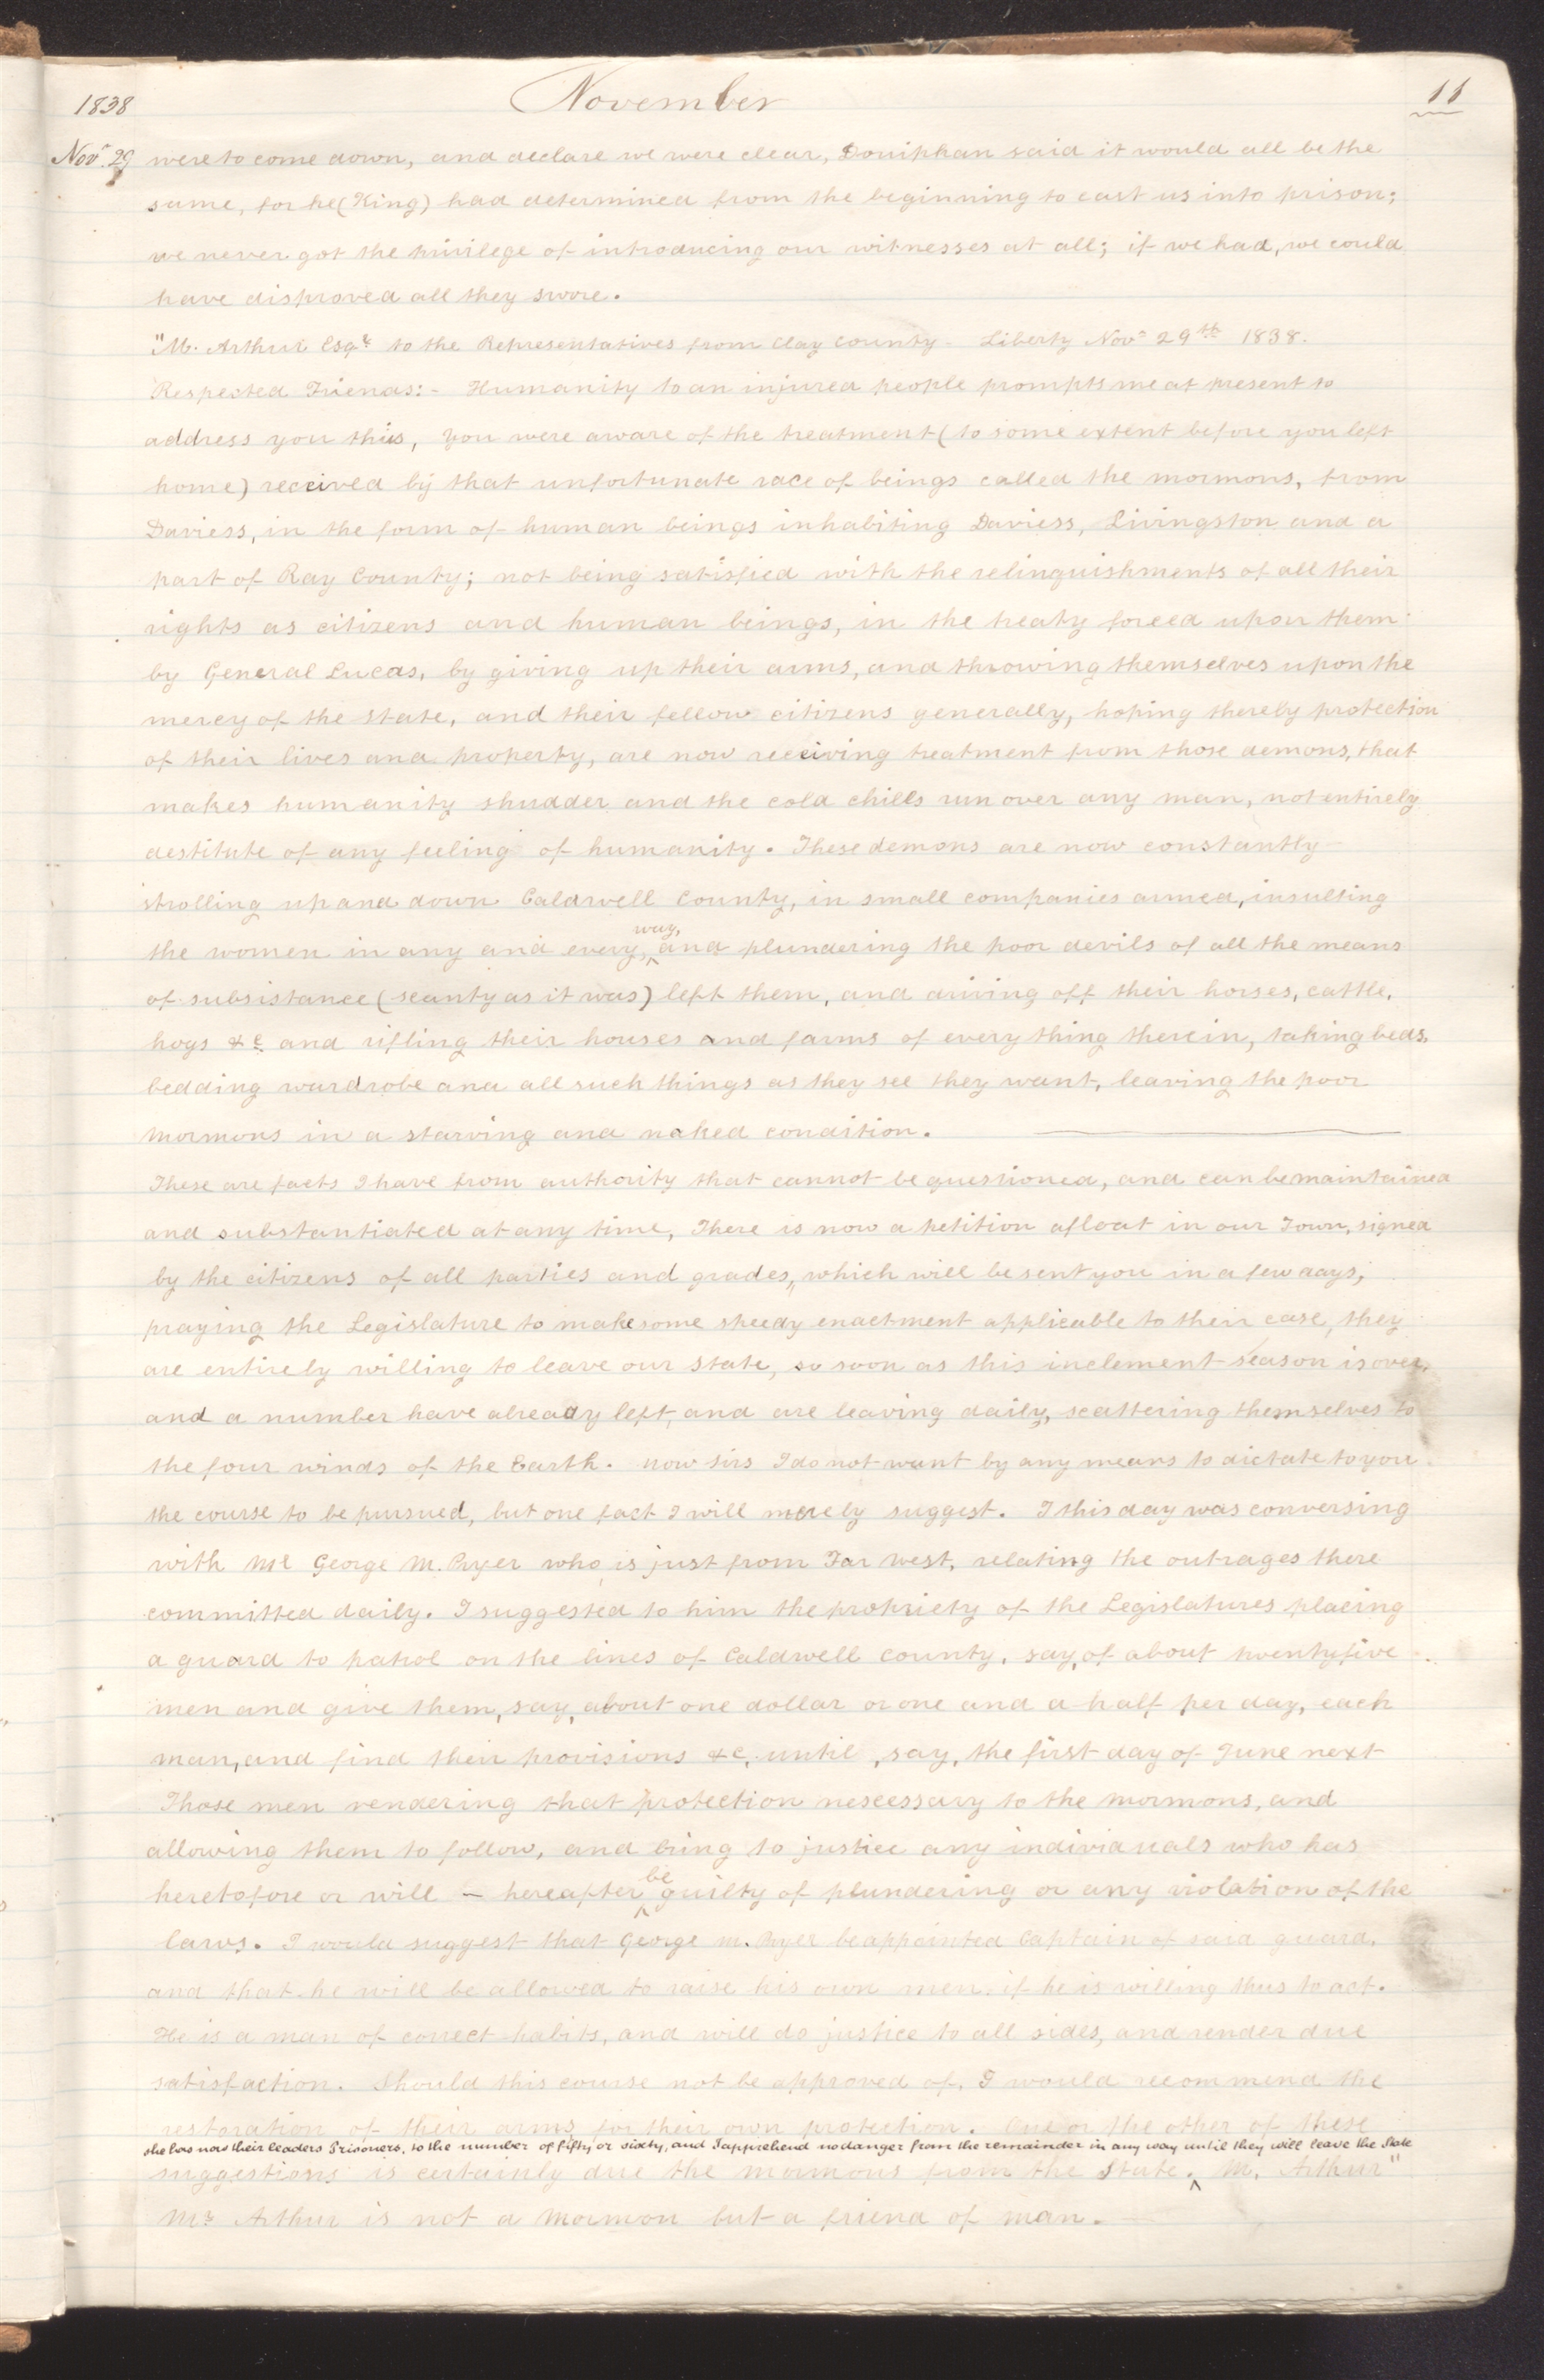 1838 November 11
Nov.r 29 were to come down, and declare we were clear, Doniphan said it would all be the
same, for he (King) had determined from the beginning to cast us into prison;
we never got the privilege of introducing our witnesses at all; if we had, we could
have disproved all they swore.
"M. Arthur Esqr. to the Representatives from Clay County - Liberty Novr 29th 1838.
Respected Friends:- Humanity to an injured people prompts me at present to
address you this, you were aware of the treatment (to some extent before you left
home) received by that unfortunate race of beings called the mormons, from
Daviess, in the form of human beings inhabiting Daviess, Livingston and a
part of Ray County; not being satisfied with the relinquishments of all their
rights as citizens and human beings, in the treaty forced upon them
by General Lucas, by giving up their arms, and throwing themselves upon the
mercy of the state, and their fellow citizens generally, hoping thereby protection
of their lives and property, are now receiving treatment from those demons, that
makes humanity shudder and the cold chills run over any man, not entirely
destitute of any feeling of humanity. These demons are now constantly
strolling up and down Caldwell County, in small companies armed, insulting
the women in any and every way, and plundering the poor devils of all the means
of subsistance (scanty as it was) left them, and driving off their horses, cattle,
hogs &c and rifling their houses and farms of every thing therein, taking beds,
bedding wardrobe and all such things as they see they want, leaving the poor
mormons in a starving and naked condition.
These are facts I have from authority that cannot be questioned, and can be maintained
and substantiated at any time, There is now a petition afloat in our Town, signed
by the citizens of all parties and grades, which will be sent you in a few days,
praying the Legislature to make some speedy enactment applicable to their case, they
are entirely willing to leave our State, so soon as this inclement season is over,
and a number have already left, and are leaving daily, scattering themselves to
the four winds of the Earth. now sirs I do not want by any means to dictate to you
the course to be pursued, but one fact I will merely suggest. I this day was conversing
with Mr George M. Pryer who is just from Far West, relating the outrages there
committed daily. I suggested to him the propriety of the Legislatures placing
a guard to patrol on the lines of Caldwell county, say, of about twentyfive
men and give them, say, about one dollar or one and a half per day, each
man, and find their provisions &c, until, say, the first day of June next
Those men rendering that protection nescessary to the mormons, and
allowing them to follow, and bring to justice any individuals who has
heretofore or will - hereafter be guilty of plundering or any violation of the
laws. I would suggest that George M. Pryer be appointed Captain of said guard,
and that he will be allowed to raise his own men, if he is willing thus to act.
He is a man of correct habits, and will do justice to all sides, and render due
satisfaction. Should this course not be approved of, I would recommend the
restoration of their arms for their own protection. One or the other of these
she has now their leaders Prisoners, to the number of fifty or sixty, and I apprehend no danger from the remainder in any way until they will leave the State
suggestions is certainly due the mormons from the State. M. Arthur"
Mr Arthur is not a Mormon but a friend of man.